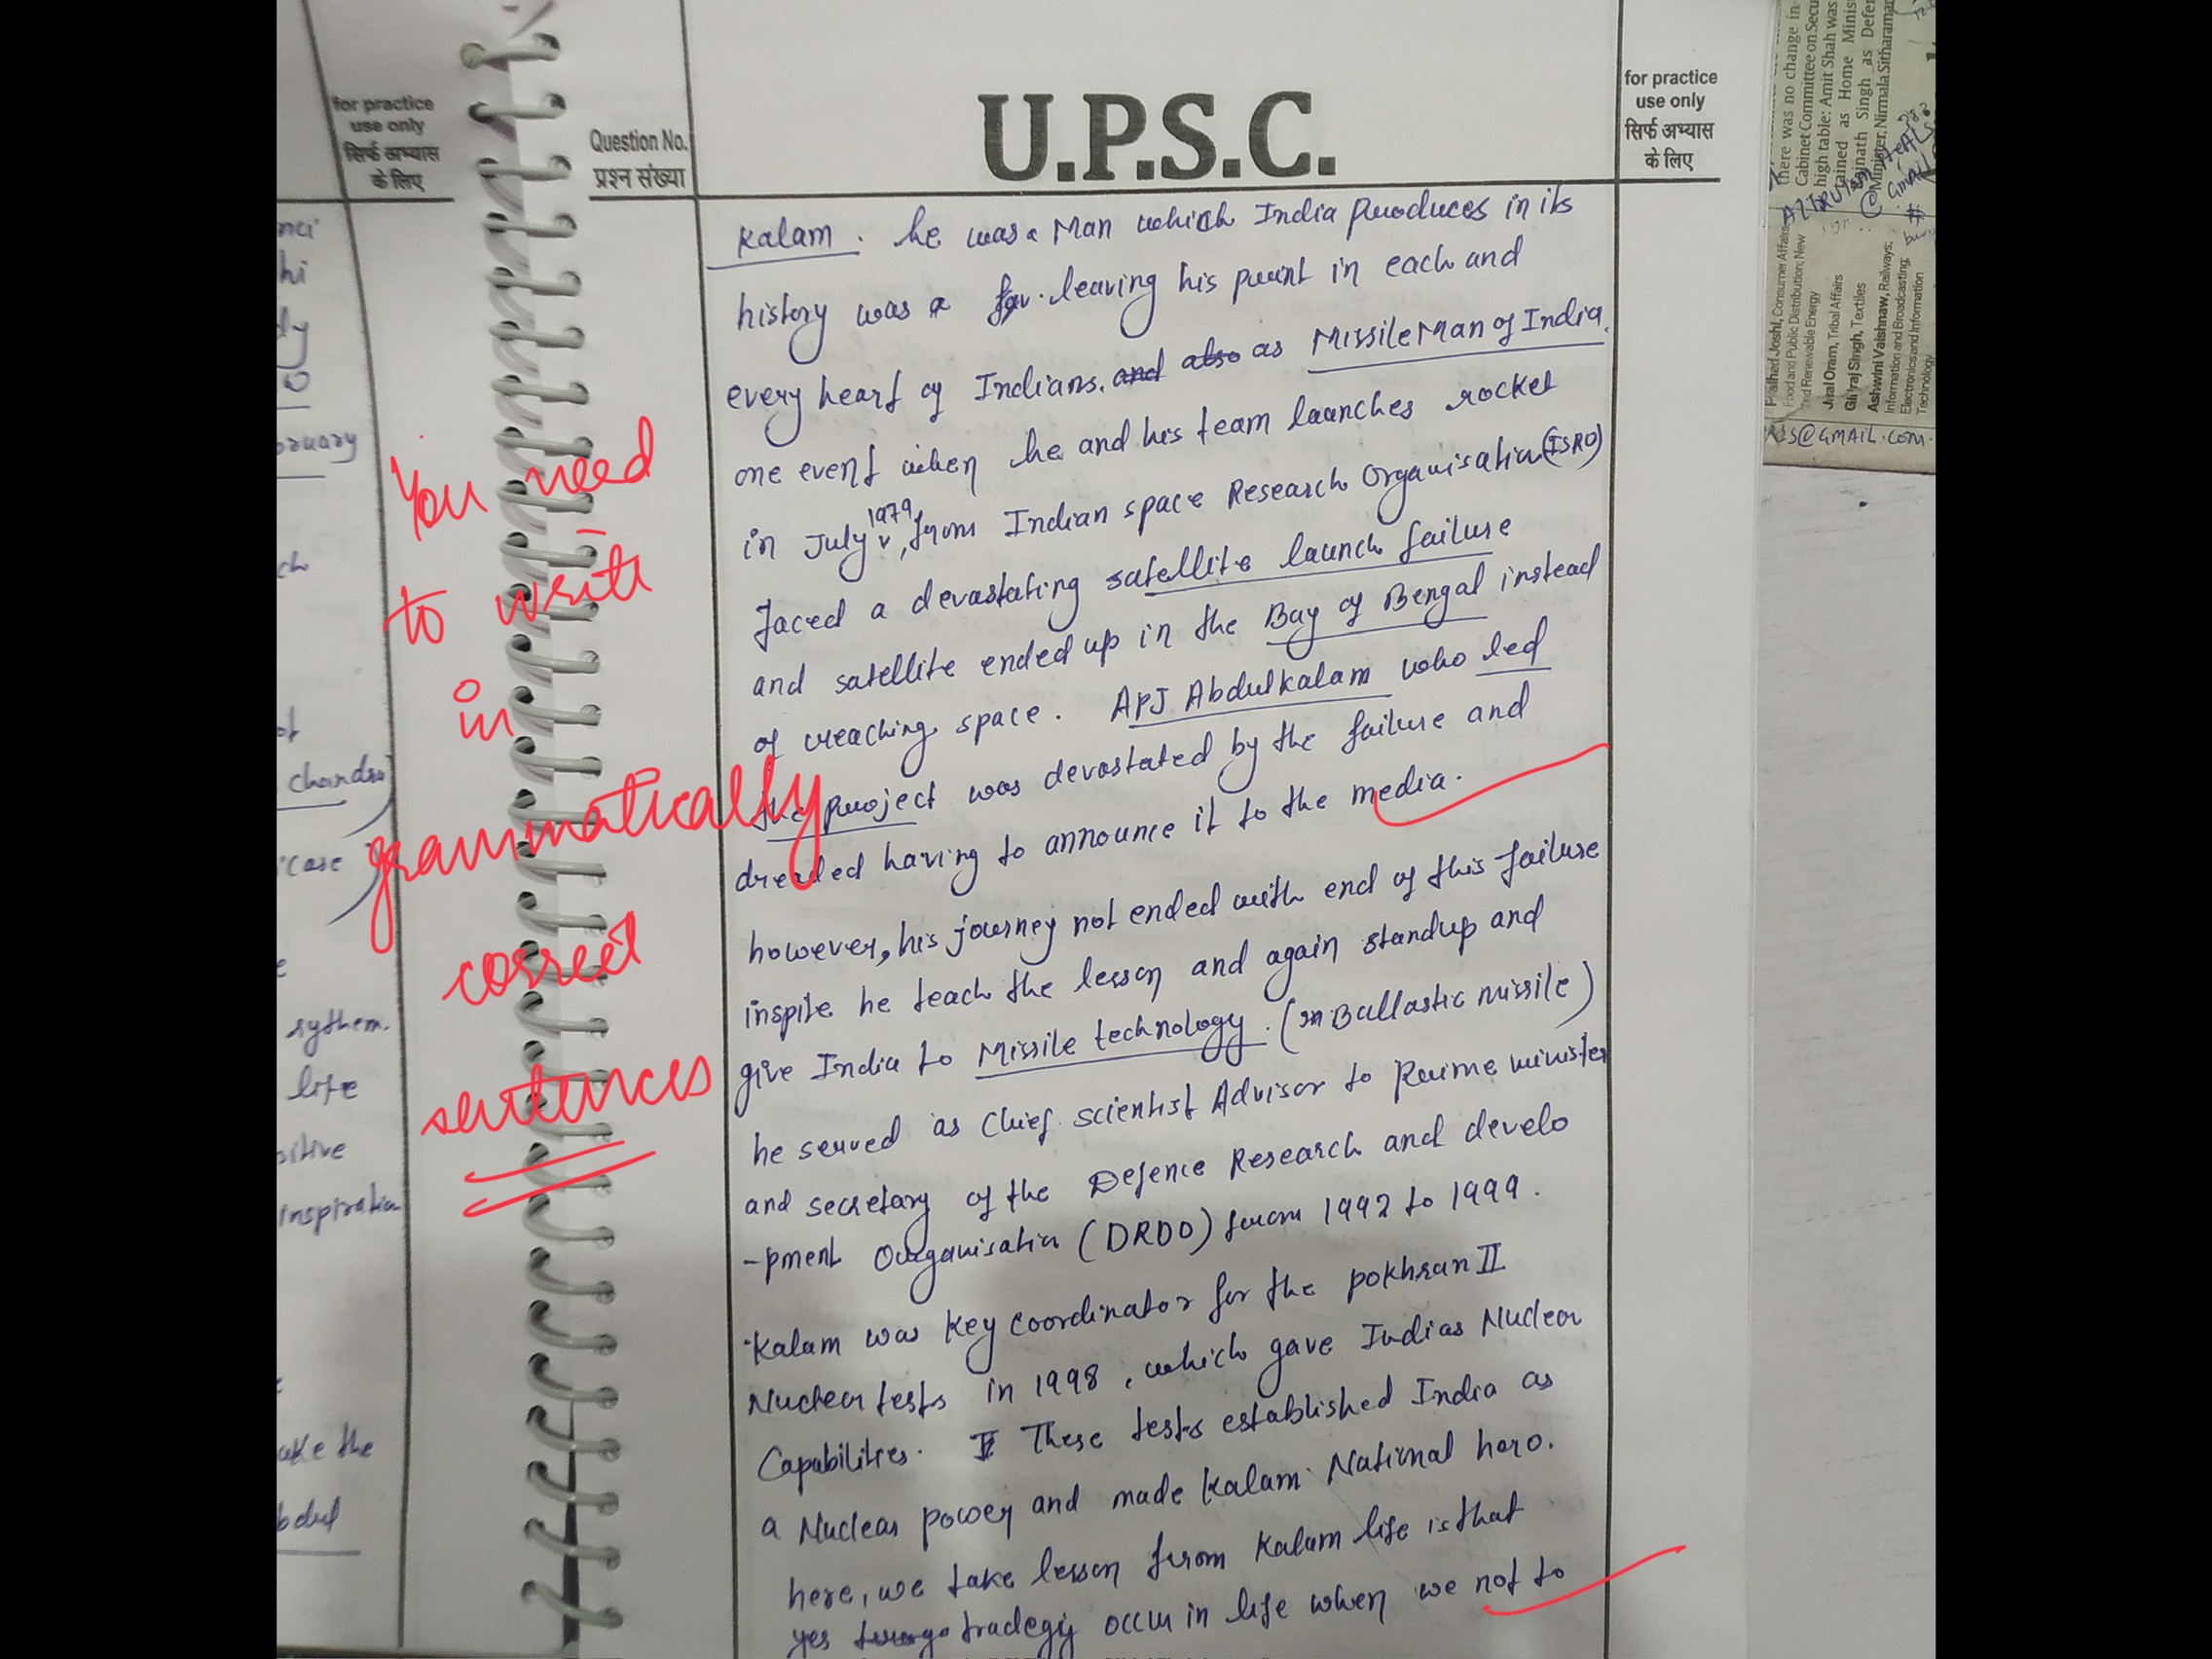 for practice
use only
सिर्फ अभ्यास
के लिए
Question No.
प्रश्न संख्या
U.P.S.C.
for practice
use only
सिर्फ अभ्यास
के लिए
Kalam. he was a Man which India produces in its
history was a leaving his print in each and
every heart of Indians. and also as Missile Man of India.
one event when he and his team launches rocket
in July 1979, from Indian space Research Organisation (ISRO)
faced a devastating satellite launch failure
and satellite ended up in the Bay of Bengal instead
of reaching space. APJ Abdulkalam who led
the project was devastated by the failure and
dreaded having to announce it to the media.
however, his journey not ended with end of this failure
inspite he teach the lesson and again standup and
give India to Missile technology. (In Ballastic missile)
he served as Chief scientist Advisor to Prime minister
and secretary of the Defence Research and develo
-pment Organisation (DRDO) from 1992 to 1999.
Kalam was key coordinator for the pokhran II
Nuclear tests in 1998, which gave Indias Nuclear
Capabilities. These tests established India as
a Nuclear power and made Kalam National hero.
here, we take lesson from Kalam life is that
yes tradegy occur in life when we not to
You need
to write
in
grammatically
correct
sentences
hi
dy
bruary
ch
ot
chandra)
case)
sythem.
life
sitive
inspiration
ake the
bdul
there was no change in
Cabinet Committee on Secu
high table: Amit Shah was
tained as Home Minis
ajnath Singh as Defen
Minister, Nirmala Sitharaman
Pralhad Joshi, Consumer Affairs,
Food and Public Distribution; New
and Renewable Energy
Jual Oram, Tribal Affairs
Giriraj Singh, Textiles
Ashwini Vaishnaw, Railways;
Information and Broadcasting;
Electronics and Information
Technology
@GMAIL.COM.